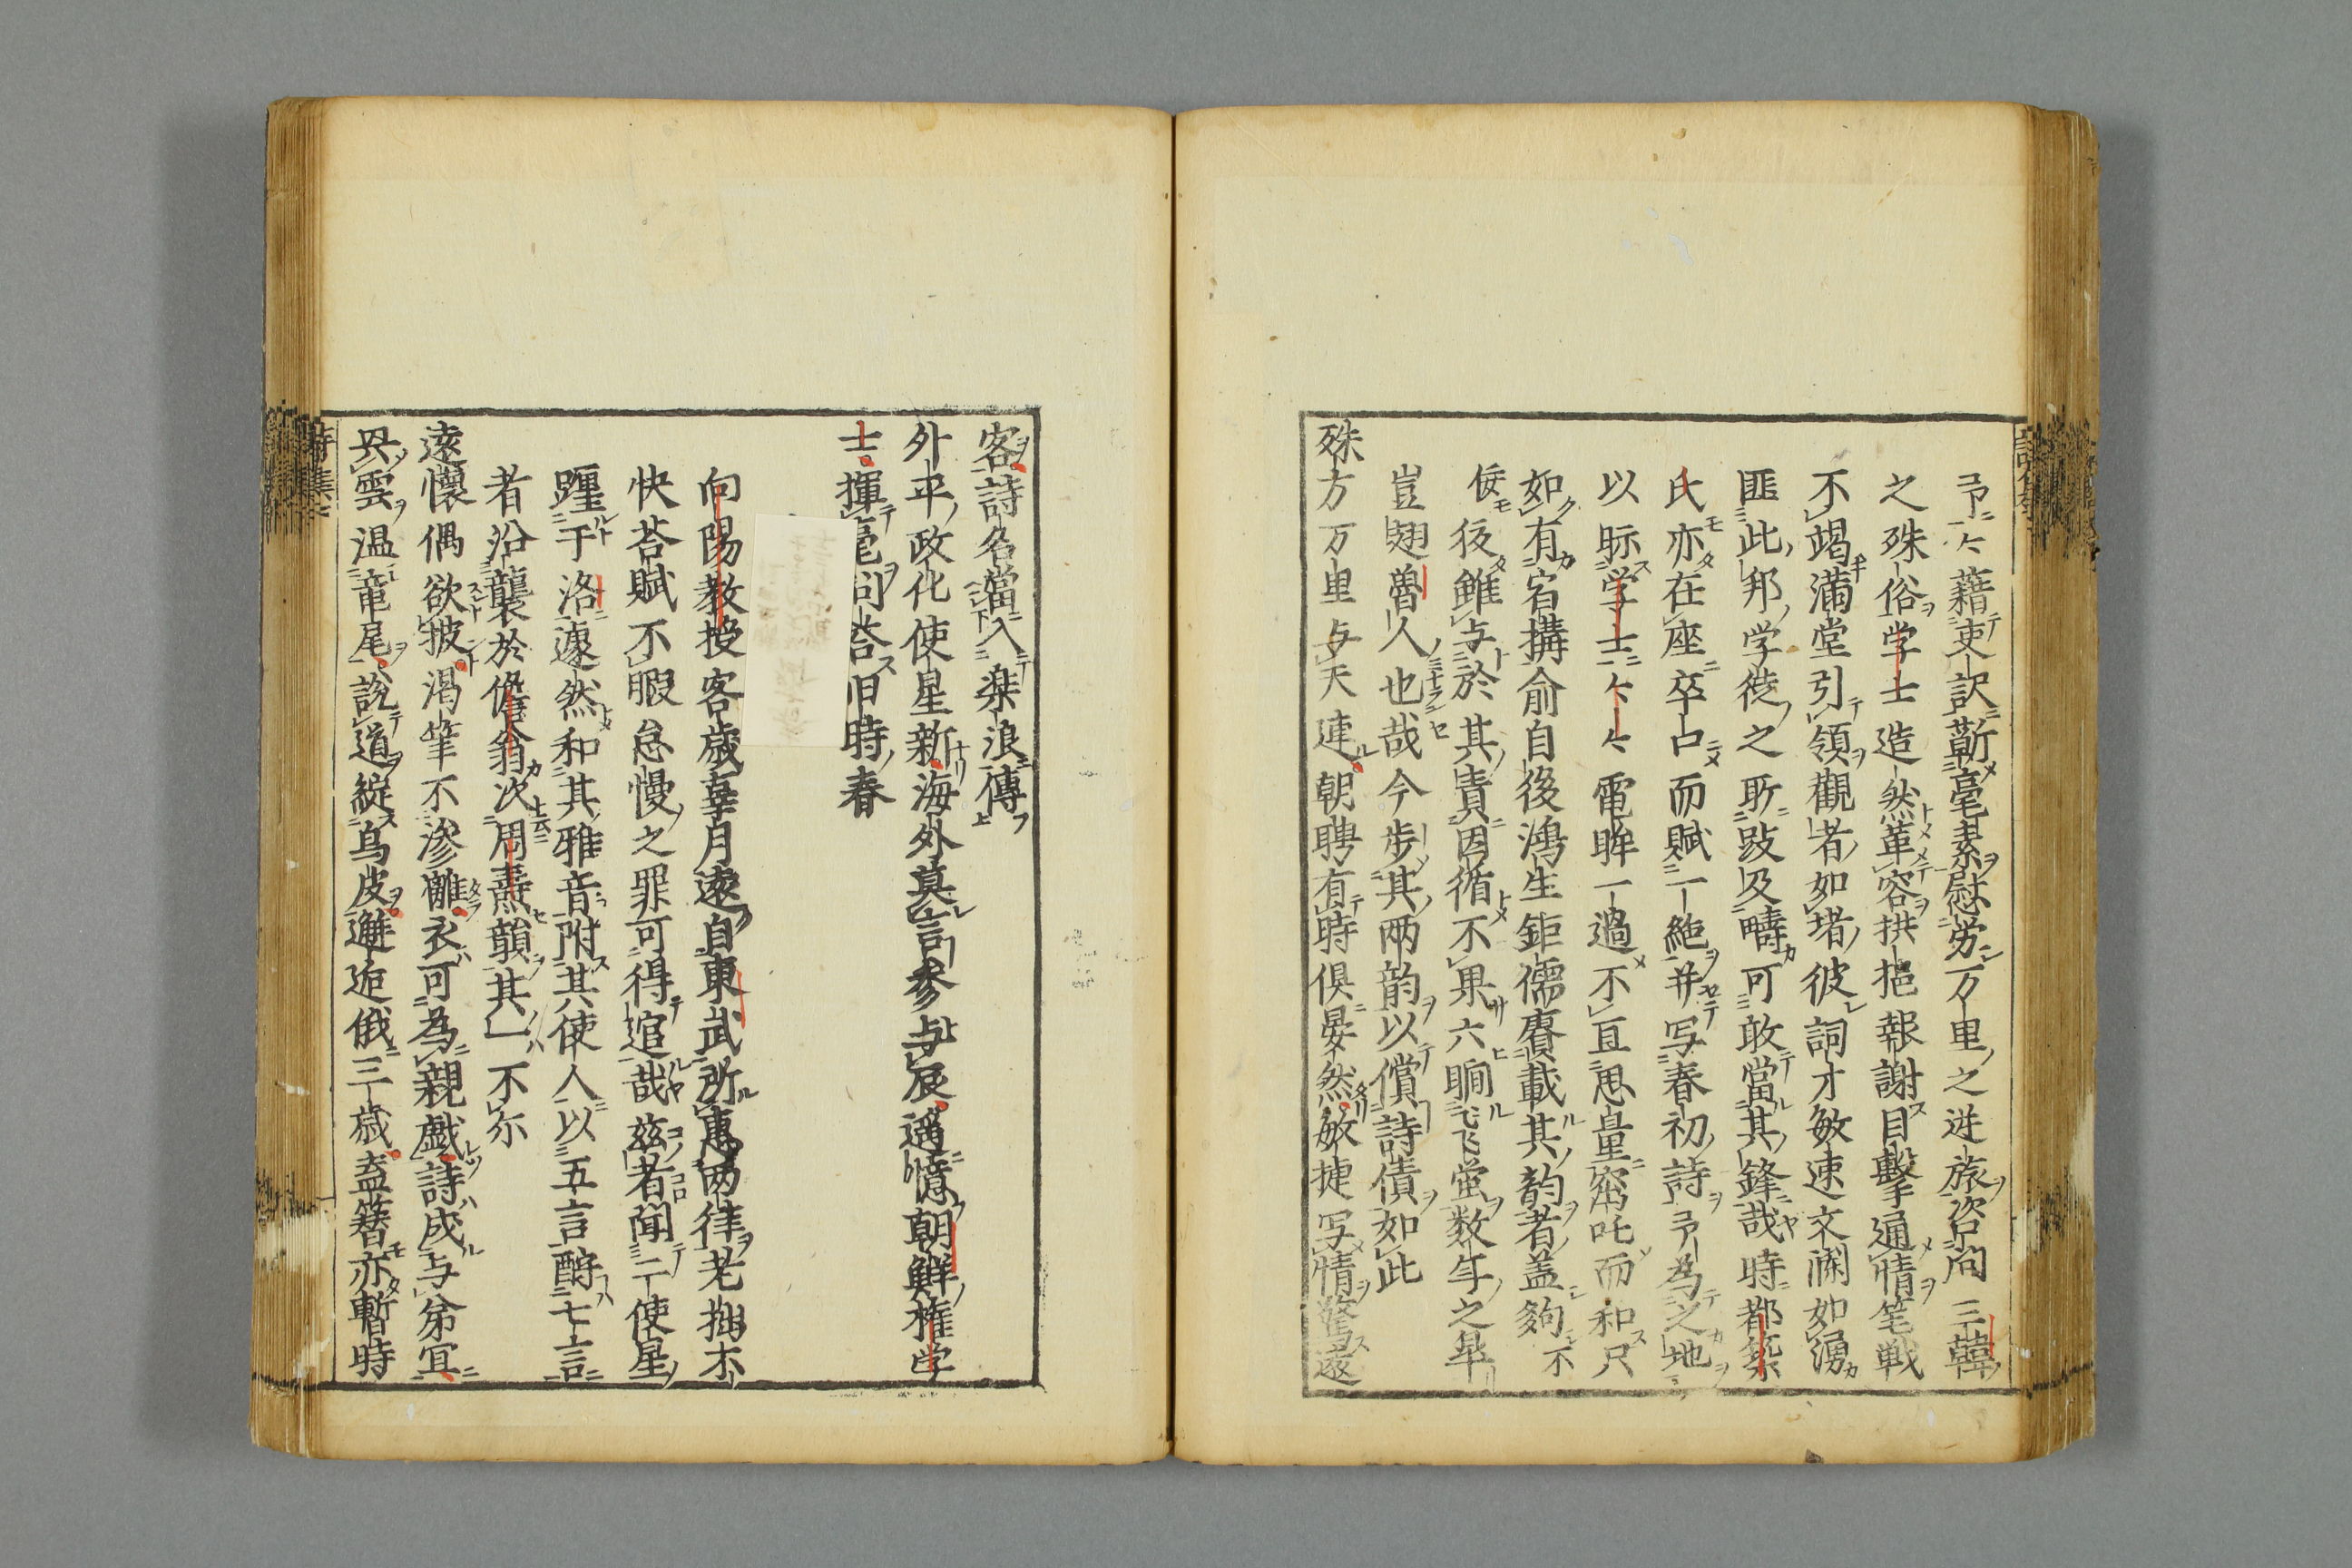 予々藉吏訳蘄毫素慰労万里之逆旅咨問三韓
之殊俗学士造然革容拱挹報謝目撃通情笔戦
不竭満堂引領観者如堵彼詞才敏速文瀾如湧
匪此邦学徒之所跂及疇可敢當其鋒哉時都築
氏亦在座卒占而賦一絶并写春初詩予為之地
以眎学士々々電眸一過不亘思量察吒而和只
如有宿搆俞自後鴻生鉅儒賡載其韵者盖夠不
佞役雖与於其責因循不果六瞷飞蛍数年之早
豈翅魯人也哉今歩其両韵以償詩債如此
殊方万里与天連朝聘有時倶晏然敏捷写情驚遠
客詩名當入楽浪傳
外平政化使星新海外莫言参与辰遥憶朝鮮権学
士揮毫問荅旧時春
向陽教授客歳辜月遠自東武所惠両律老拙不
快荅賦不暇怠慢之罪可得逭哉茲者聞二使星
躔于洛遽然和其雅音附其使人以五言酧七言
者沿襲於儋翁次周燾韻其一不尓
遠懐偶欲披渇筆不滲離衣可為親戯詩成与弟冝
呉雲温竜尾説道綻烏皮邂逅俄三歳盍簪亦暫時
詩集